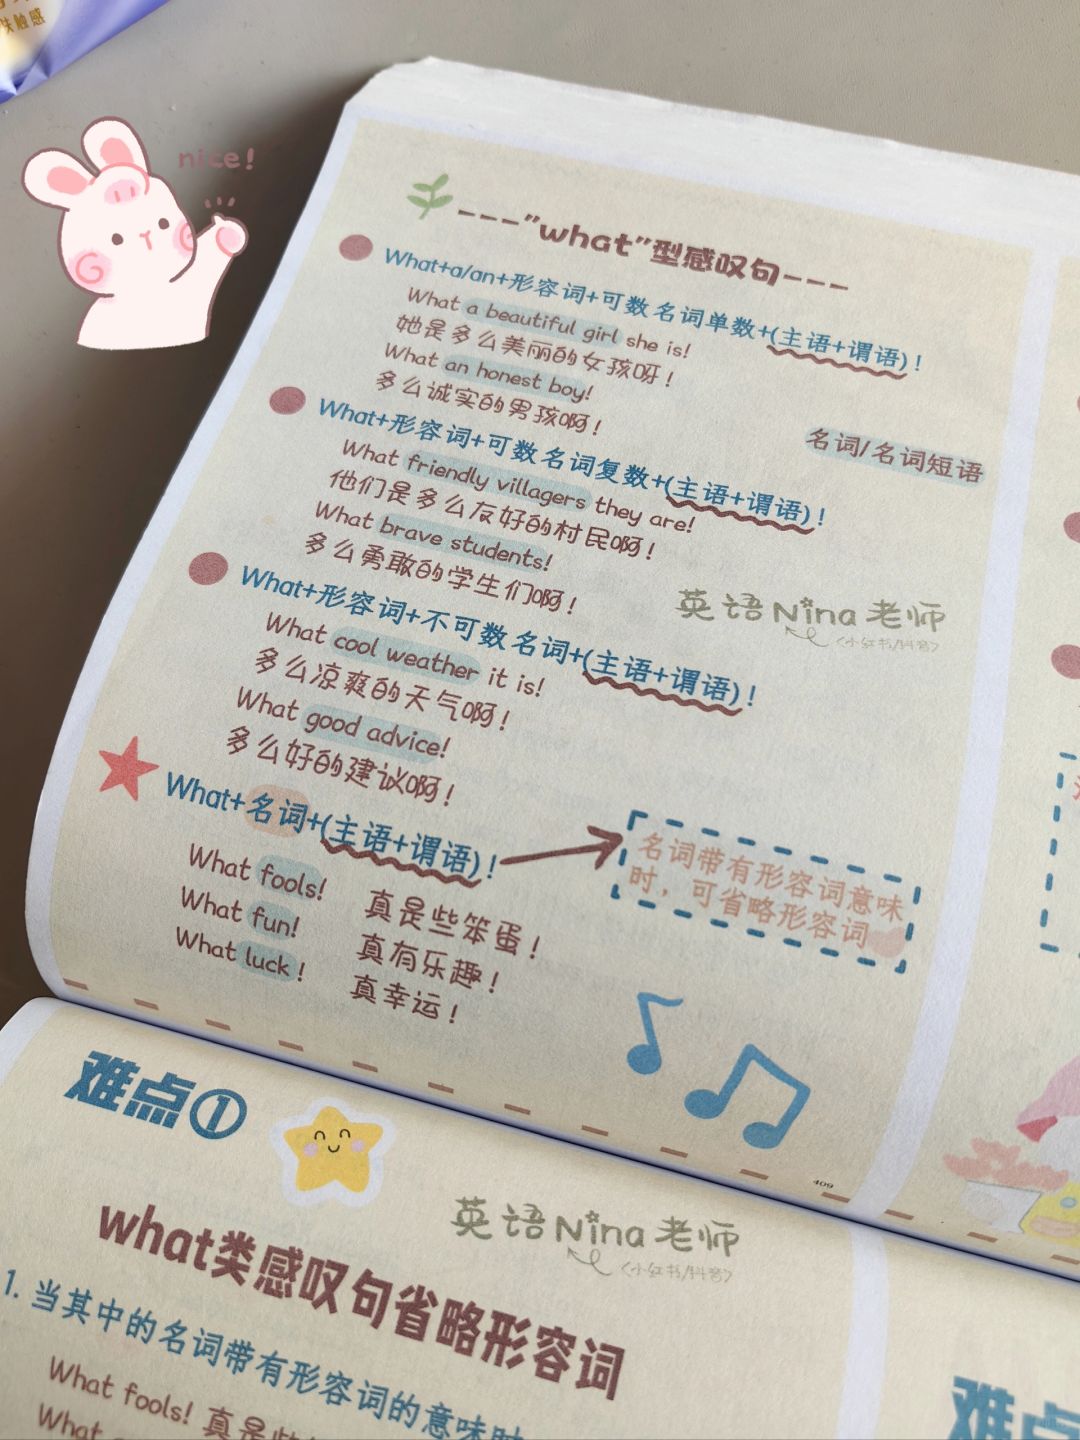 味触感
nice!
---"what"型感叹句---
What+a/an+形容词+可数名词单数+(主语+谓语)!
What a beautiful girl she is!
她是多么美丽的女孩呀!
What an honest boy!
多么诚实的男孩啊!
名词/名词短语
What+形容词+可数名词复数+(主语+谓语)!
What friendly villagers they are!
他们是多么友好的村民啊!
What brave students!
多么勇敢的学生们啊!
英语Nina老师
(小红书/抖音)
What+形容词+不可数名词+(主语+谓语)!
What cool weather it is!
多么凉爽的天气啊!
What good advice!
多么好的建议啊!
What+名词+(主语+谓语)!
名词带有形容词意味
时,可省略形容词
What fools! 真是些笨蛋!
What fun! 真有乐趣!
What luck! 真幸运!
409
难点①
英语Nina老师
(小红书/抖音)
what类感叹句省略形容词
1. 当其中的名词带有形容词的意味时
What fools! 真是些
What
难点